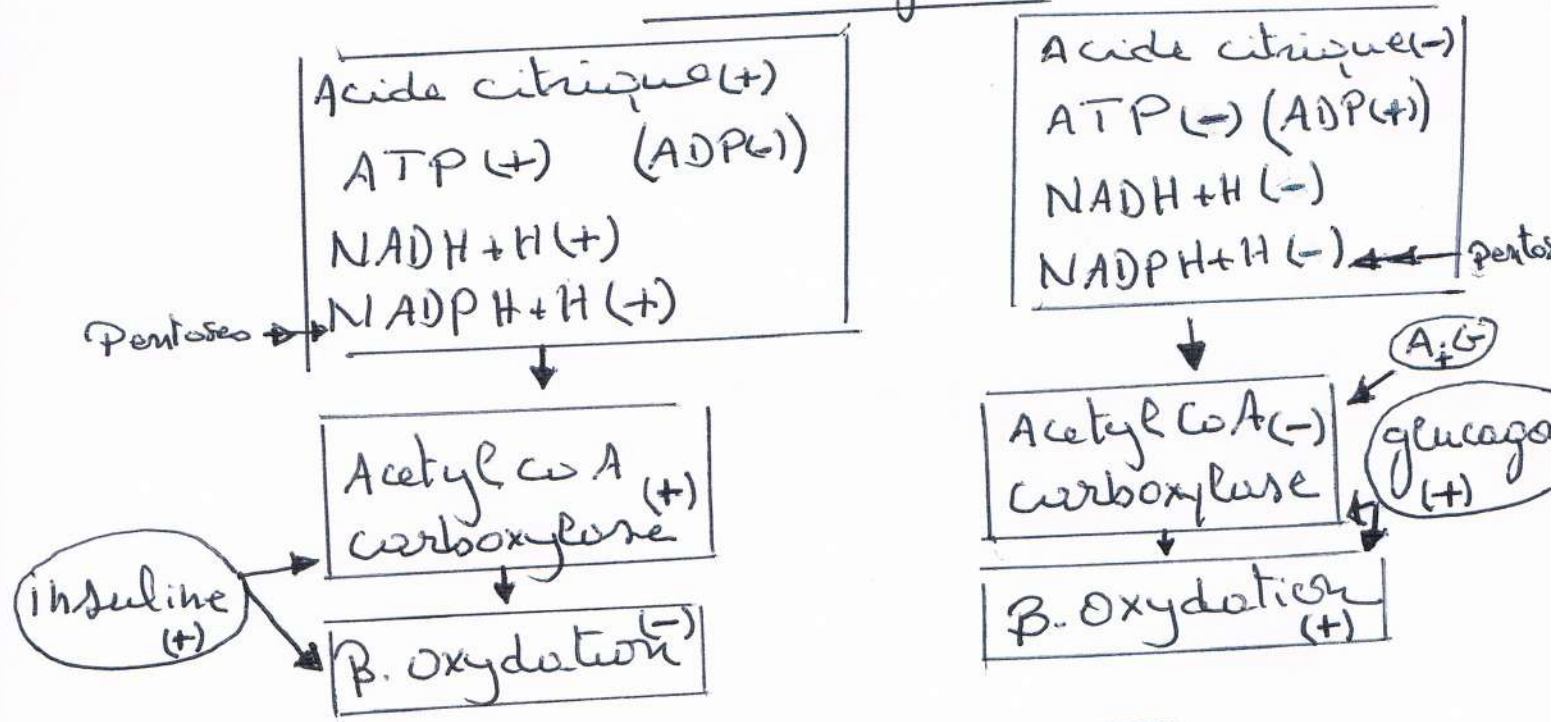 Acide citrique (+)
ATP (+) (ADP(-))
NADH + H (+)
NADPH + H (+)
Pentoses
Acetyl CoA (+)
carboxylase
insuline
(+)
B. oxydation (-)
Acide citrique (-)
ATP (-) (ADP(+))
NADH + H (-)
NADPH + H (-)
Pentos
Acetyl CoA (-)
carboxylase
glucago
(+)
B. Oxydation
(+)